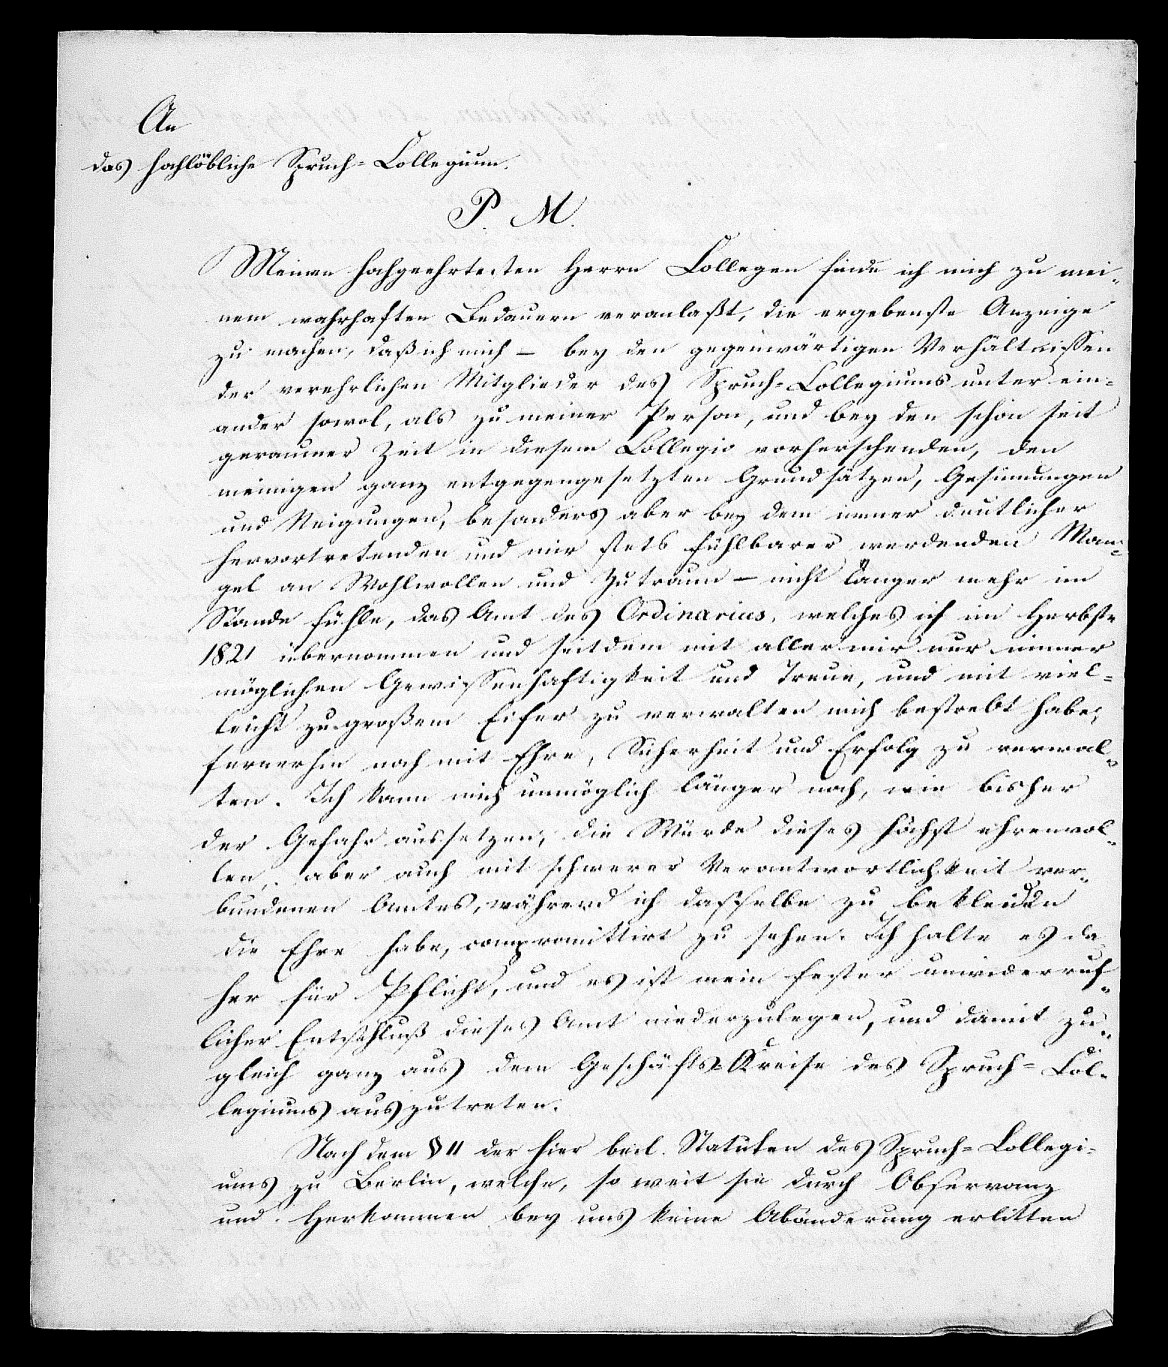 An
das hochlöbliche Spruch=Collegium.
P. M.
Meinen hochgeehrtesten Herrn Collegen finde ich mich zu mei-
nem wahrhaften Bedauern veranlaßt, die ergebenste Anzeige
zu machen, daß ich mich – bey den gegenwärtigen Verhältnissen
der verehrlichen Mitglieder des Spruch-Collegiums unter ein-
ander sowol, als zu meiner Person, und bey den schon seit
geraumer Zeit in diesem Collegio vorherschenden, den
meinigen ganz entgegengesetzten Grundsätzen, Gesinnungen
und Neigungen, besonders aber bey dem immer deutlicher
hervortretenden und mir stets fühlbarer werdenden Man-
gel an Wohlwollen und Zutraun – nicht länger mehr im
Stande fühle, das Amt des Ordinarius, welches ich im Herbste
1821 übernommen und seitdem mit aller mir nur immer
möglichen Gewissenhaftigkeit und Treue, und mit viel-
leicht zu großem Eifer zu verwalten mich bestrebt habe,
fernerhin noch mit Ehre, Sicherheit und Erfolg zu verwal-
ten. Ich kann mich unmöglich länger noch, wie bisher
der Gefahr aussetzen, die Würde dieses höchst ehrenvol-
len, aber auch mit schwerer Verantwortlichkeit ver-
bundenen Amtes, während ich dasselbe zu bekleiden
die Ehre habe, compromittirt zu sehen. Ich halte es da-
her für Pflicht, und es ist mein fester unwiderruf-
licher Entschluß dieses Amt niederzulegen, und damit zu-
gleich ganz aus dem Geschäfts-Kreise des Spruch= Col-
legiums auszutreten.
Nach dem § 11 der hier beil. Statuten des Spruch= Collegi-
ums zu Berlin, welche, so weit sie durch Observanz
und Herkommen bey uns keine Abänderung erlitten